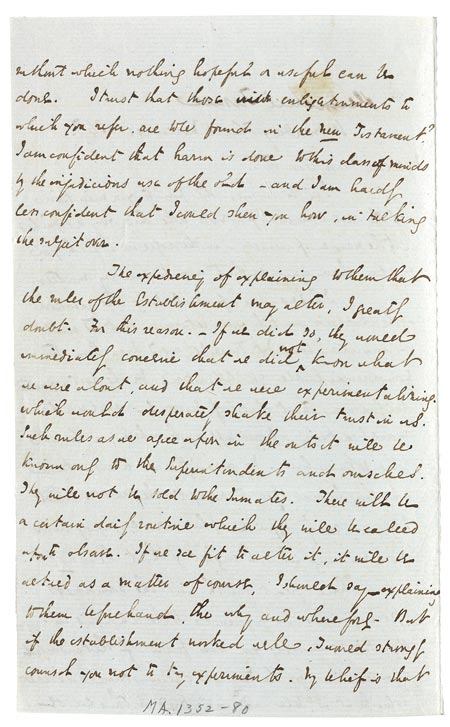 without which nothing hopeful or useful can be
done. I trust that those enlightenments to
which you refer, are to be found in the new Testament?
I am confident that harm is done to this class of minds
by the injudicious use of the old - and I am hardly
less confident that I could shew you how, in talking
the subject over.
The expediency of explaining to them that
the rules of the Establishment may alter, I greatly
doubt. For this reason. - If we did so, they would
immediately conceive that we did not know what
we were about, and that we were experimentalizing.
which would desperately shake their trust in us.
Such rules as we agree upon in the outset will be
known only to the Superintendents and ourselves.
They will not be told to the Inmates. There will be
a certain daily routine which they will be called
upon to observe. If we see fit to alter it, it will be
altered as a matter of course, I should say - explaining
to them beforehand, the why and wherefore - But
if the establishment worked well, I would strongly
counsel you not to try experiments. My belief is that
MA. 1352-80